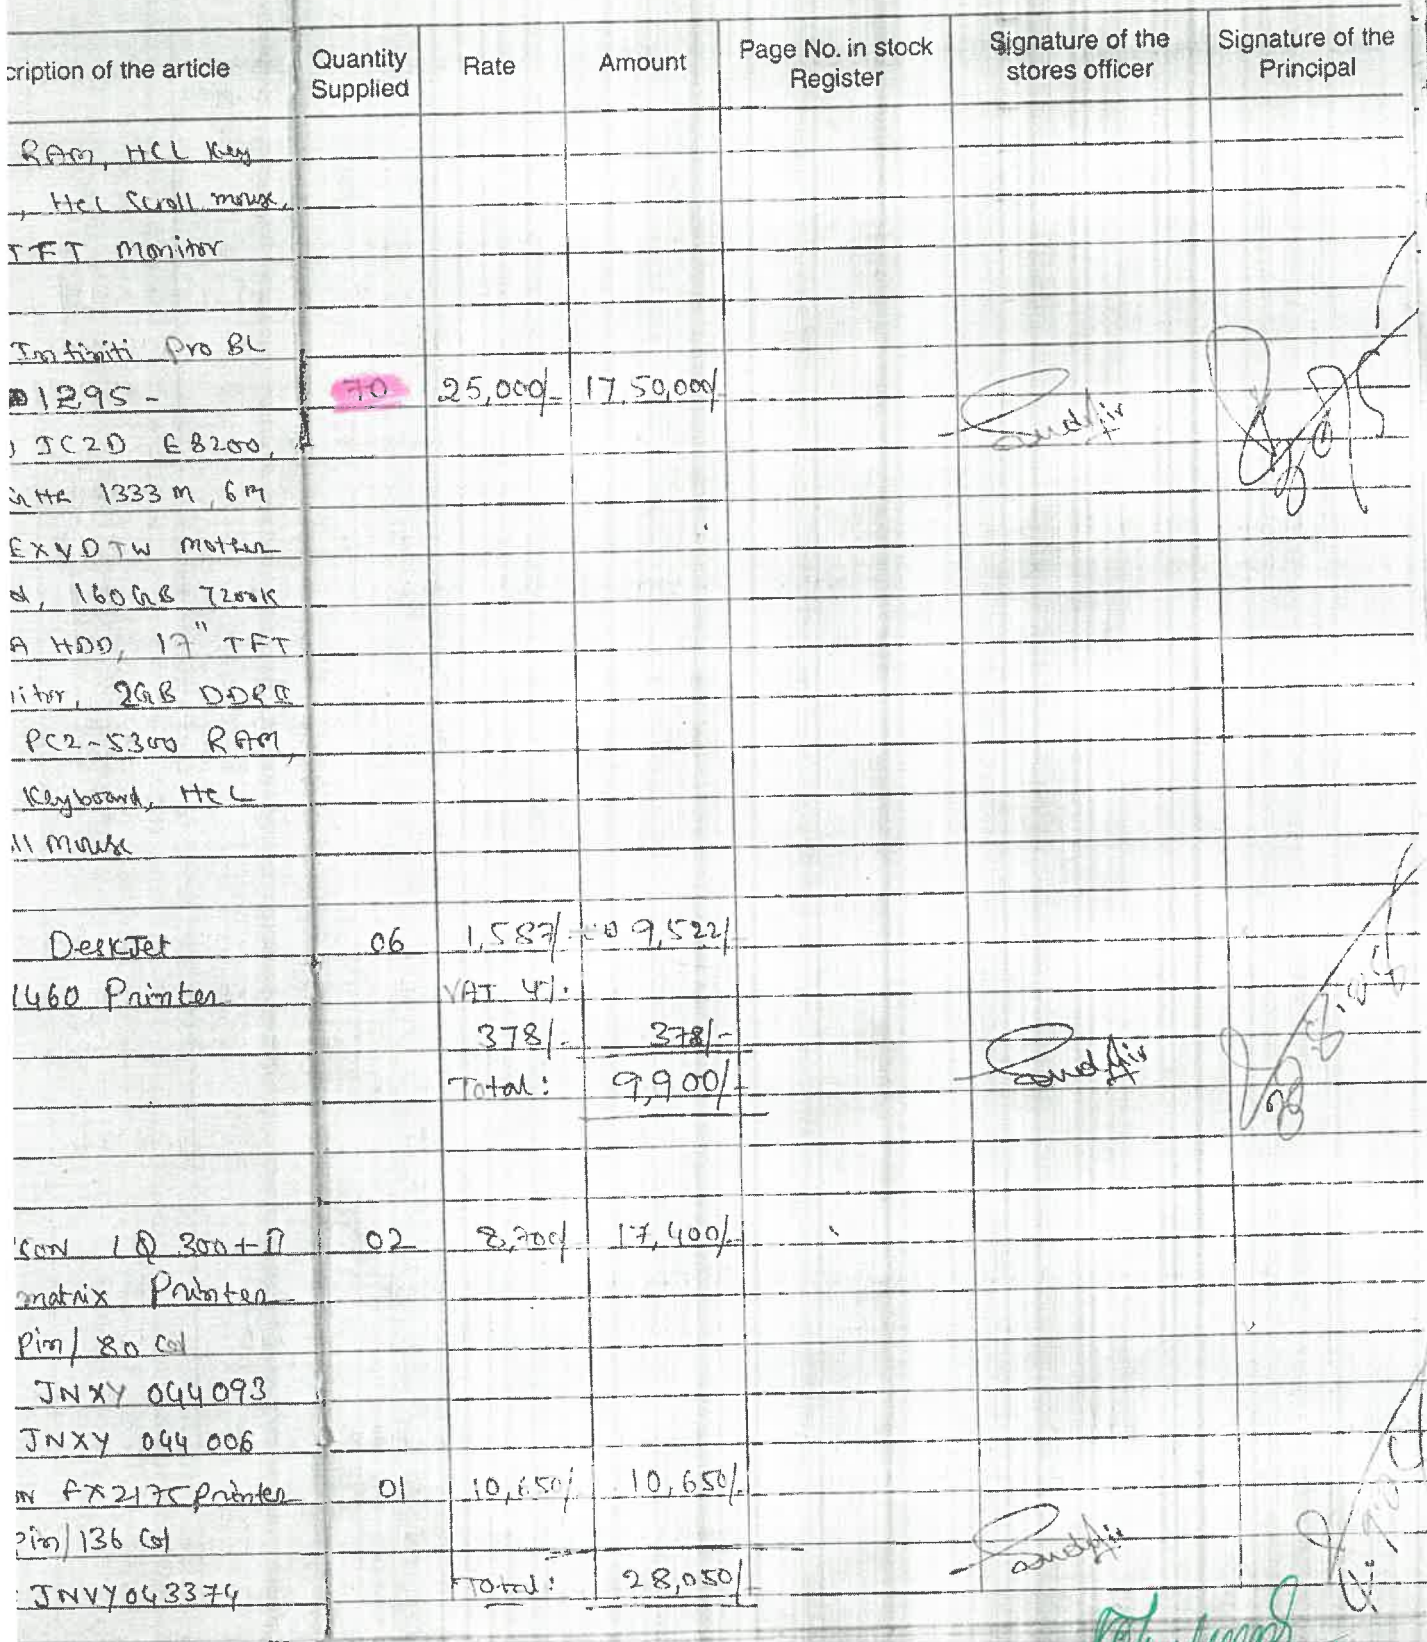 cription of the article Quantity Supplied Rate Amount Page No. in stock Register Signature of the stores officer Signature of the Principal
RAM, HCL Key
, HCL Scroll mouse,
TFT Monitor
Infiniti Pro BL
1295 - 70 25,000/- 17,50,000/-
IC2D E8200,
GHz 1333 M, 6M
EXVDTW Mother
d, 160GB 7200K
A HDD, 17" TFT
itor, 2GB DDR II
PC2-5300 RAM,
Keyboard, HCL
ll Mouse
DeskJet 06 1,587/- 9,522/-
1460 Printer VAT 4%.
378/- 378/-
Total: 9,900/-
SON LQ 300+II 02 8,700/- 17,400/-
matrix Printer
Pin/80 Col
JNXY 044093
JNXY 044 006
N FX2175 Printer 01 10,650/- 10,650/-
Pin/136 Col
: JNVY043374 Total: 28,050/-